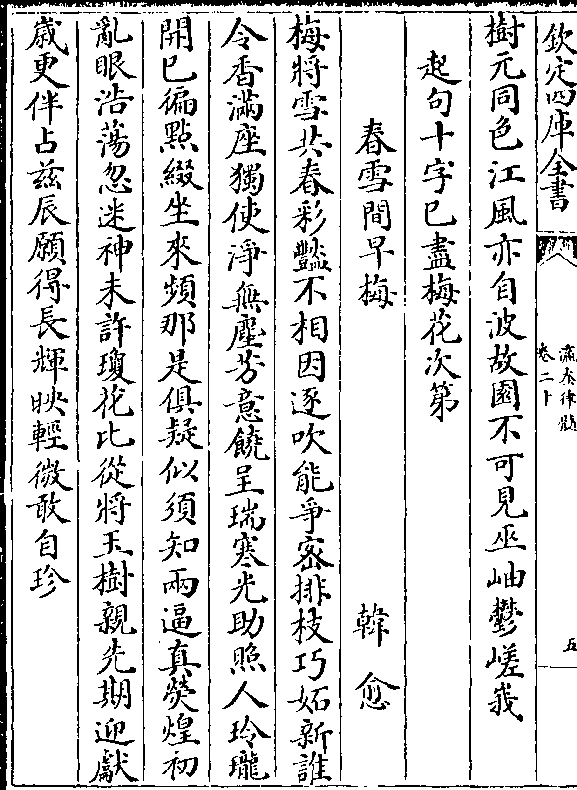 欽定四庫全書
瀛奎律髓
卷二十
五
樹元同色江風亦自波故園不可見巫岫鬱嵯峩
起句十字已盡梅花次第
春雪間早梅
韓愈
梅將雪共春彩艷不相因逐吹能爭密排枝巧妬新誰
令香滿座獨使淨無塵芳意饒呈瑞寒光助照人玲瓏
開已徧點綴坐來頻那是俱疑似須知兩逼真熒煌初
亂眼浩蕩忽迷神未許瓊花比從將玉樹親先期迎獻
歲更伴占兹辰願得長輝映輕微敢自珍